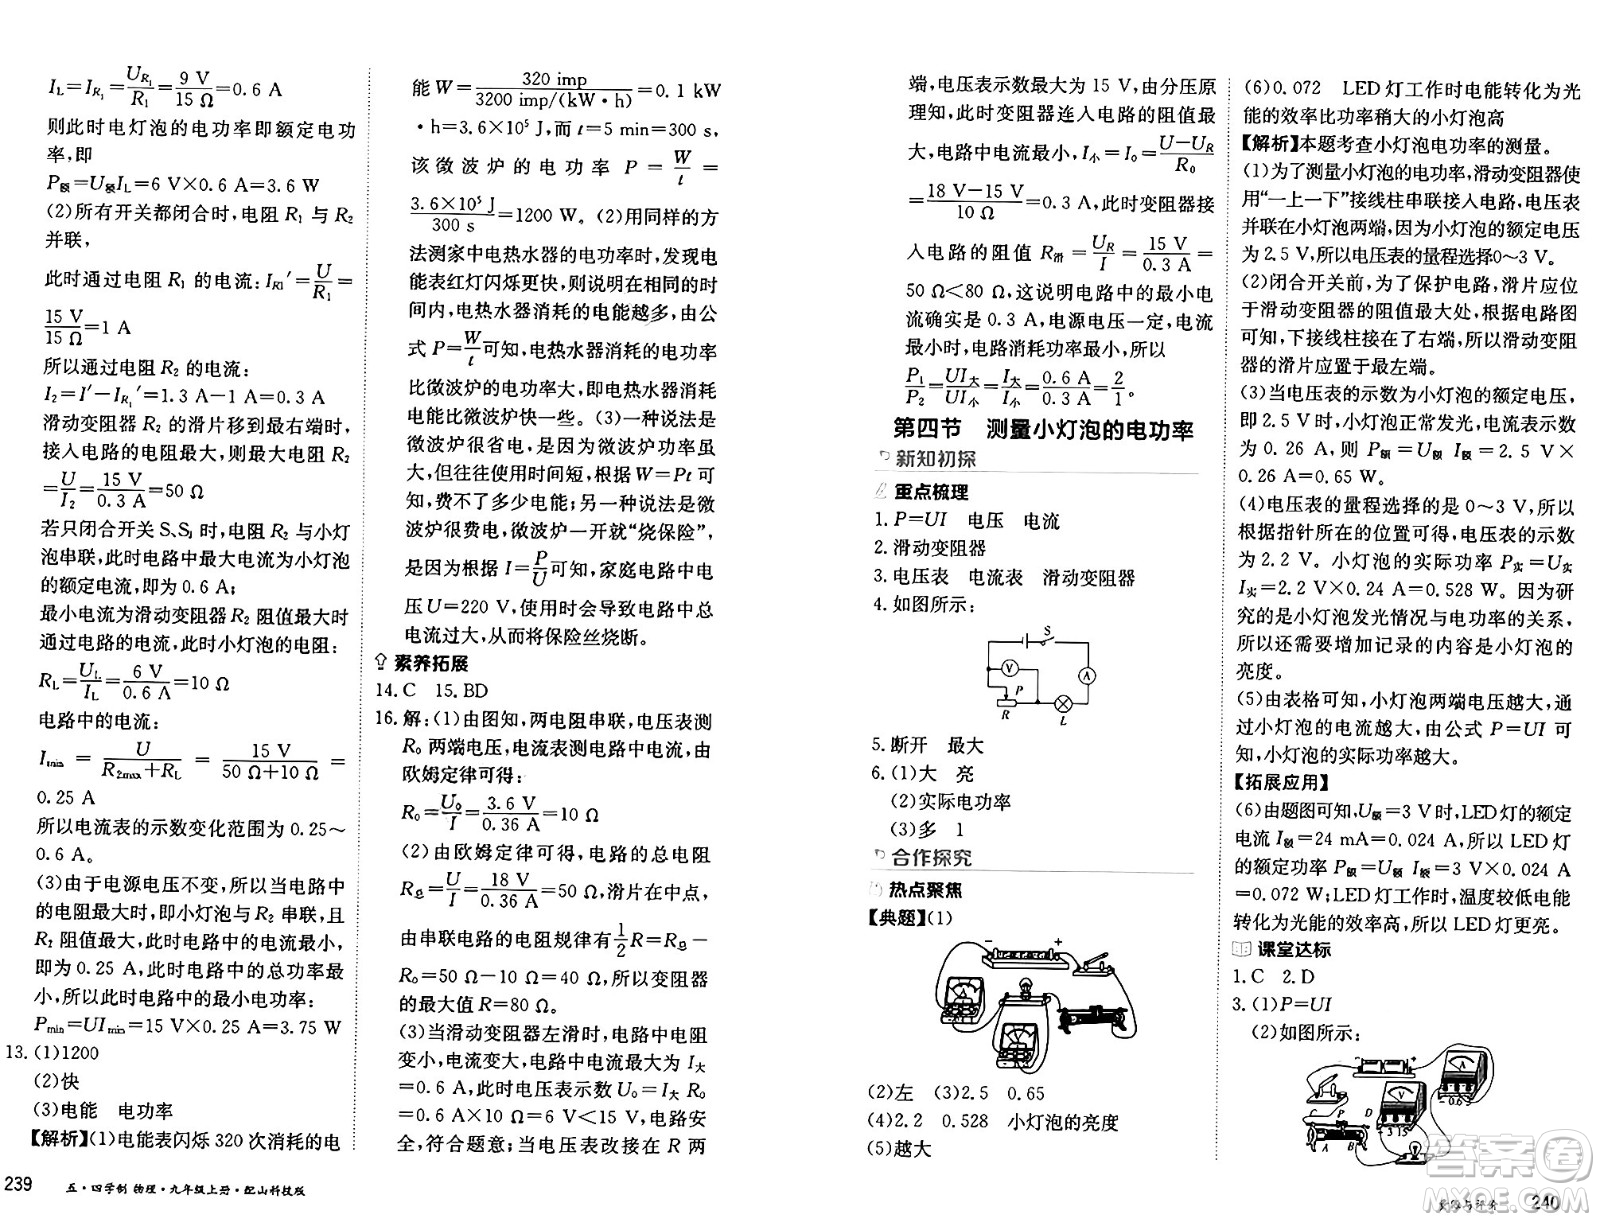 I_L=I_{R₁}=U_{R₁}/R₁=9 V/15 Ω=0.6 A
则此时电灯泡的电功率即额定电功
率,即
P额=U额I_L=6 V×0.6 A=3.6 W
(2)所有开关都闭合时,电阻 R₁ 与 R₂
并联,
此时通过电阻 R₁ 的电流:I_{R1}′=U/R₁=
15 V/15 Ω=1 A
所以通过电阻 R₂ 的电流:
I₂=I′-I_{R₁}′=1.3 A-1 A=0.3 A
滑动变阻器 R₂ 的滑片移到最右端时,
接入电路的电阻最大,则最大电阻 R₂
=U/I₂=15 V/0.3 A=50 Ω
若只闭合开关 S、S₁ 时,电阻 R₂ 与小灯
泡串联,此时电路中最大电流为小灯泡
的额定电流,即为 0.6 A;
最小电流为滑动变阻器 R₂ 阻值最大时
通过电路的电流,此时小灯泡的电阻:
R_L=U_L/I_L=6 V/0.6 A=10 Ω
电路中的电流:
I_min=U/(R_{2max}+R_L)=15 V/(50 Ω+10 Ω)=
0.25 A
所以电流表的示数变化范围为 0.25~
0.6 A。
(3)由于电源电压不变,所以当电路中
的电阻最大,即小灯泡与 R₂ 串联,且
R₂ 阻值最大时,电路中的电流最小,即
为 0.25 A,此时电路中的总功率最
小,所以此时电路中的最小电功率:
P_min=UI_min=15 V×0.25 A=3.75 W
13.(1)1200
(2)快
(3)电能 电功率
【解析】(1)电能表闪烁 320 次消耗的电
239 五·四学制 物理·九年级上册·配山科技版
能 W=320 imp/3200 imp/(kW·h)=0.1 kW
·h=3.6×10⁵ J,而 t=5 min=300 s,
该微波炉的电功率 P=W/t=
3.6×10⁵ J/300 s=1200 W。(2)用同样的方
法测家中电热水器的电功率时,发现电
能表红灯闪烁更快,则说明在相同的时
间内,电热水器消耗的电能越多,由公
式 P=W/t可知,电热水器消耗的电功率
比微波炉的电功率大,即电热水器消耗
电能比微波炉快一些。(3)一种说法是
微波炉很省电,因为微波炉功率虽然
大,但往往用时短,根据 W=Pt 可
知,费不了多少电能;另一种说法是微
波炉很费电,微波炉一开就“烧保险”,
是因为根据 I=P/U可知,家庭电路中电
压 U=220 V,使用时会导致电路中总
电流过大,从而将保险丝烧断。
素养拓展
14.C 15.BD
16.解:(1)由图知,两电阻串联,电压表测
R₀ 两端电压,电流表测电路中电流,由
欧姆定律可得:
R₀=U₀/I=3.6 V/0.36 A=10 Ω
(2)由欧姆定律可得,电路的总电阻
R总=U/I=18 V/0.36 A=50 Ω,滑片在中点,
由串联电路的电阻规律有1/2R=R总-
R₀=50 Ω-10 Ω=40 Ω,所以变阻器
的最大值 R=80 Ω。
(3)当滑动变阻器左滑时,电路中电阻
变小,电流变大,电路中最大电流 I大
=0.6 A,此时电压表示数 U₀=I大 R₀
=0.6 A×10 Ω=6 V<15 V,电路安
全,符合题意;当电压表改接在 R 两
端,电压表示数最大为 15 V,由分压原
理知,此时变阻器连入电路的阻值最
大,电路中电流最小,I小=I₀=(U-U_R)/R₀
=(18 V-15 V)/10 Ω=0.3 A,此时变阻器接
入电路的阻值 R滑=U_R/I=15 V/0.3 A=
50 Ω<80 Ω,这说明电路中的最小电
流确实是 0.3 A,电源电压一定,电流
最小时,电路消耗功率最小,所以
P₁/P₂=UI大/UI小=I大/I小=0.6 A/0.3 A=2/1。
第四节 测量小灯泡的电功率
新知初探
重点梳理
1.P=UI 电压 电流
2.滑动变阻器
3.电压表 电流表 滑动变阻器
4.如图所示:
S
V
A
P
R
L
5.断开 最大
6.(1)大 亮
(2)实际电功率
(3)多 1
合作探究
热点聚焦
【典题】(1)
- +
A
V
(2)左 (3)2.5 0.65
(4)2.2 0.528 小灯泡的亮度
(5)越大
(6)0.072 LED 灯工作时电能转化为光
能的效率比功率稍大的小灯泡高
【解析】本题考查小灯泡电功率的测量。
(1)为了测量小灯泡的电功率,滑动变阻器使
用“一上一下”接线柱串联接入电路,电压表
并联在小灯泡两端,因为小灯泡的额定电压
为 2.5 V,所以电压表的量程选择0~3 V。
(2)闭合开关前,为了保护电路,滑片应位
于滑动变阻器的阻值最大处,根据电路图
可知,下接线柱接了右端,所以滑动变阻
器的滑片应置于最左端。
(3)当电压表的示数为小灯泡的额定电压,
即 2.5 V时,小灯泡正常发光,电流表示数
为 0.26 A,则 P额=U额 I额=2.5 V×
0.26 A=0.65 W。
(4)电压表的量程选择的是 0~3 V,所以
根据指针所在的位置可得,电压表的示数
为 2.2 V。小灯泡的实际功率 P实=U实
I实=2.2 V×0.24 A=0.528 W。因为研
究的是小灯泡发光情况与电功率的关系,
所以还需要增加记录的内容是小灯泡的
亮度。
(5)由表格可知,小灯泡两端电压越大,通
过小灯泡的电流越大,由公式 P=UI 可
知,小灯泡的实际功率越大。
【拓展应用】
(6)由题图可知,U额=3 V时,LED灯的额定
电流 I额=24 mA=0.024 A,所以 LED 灯
的额定功率 P额=U额 I额=3 V×0.024 A=
0.072 W;LED灯工作时,温度较低电能
转化为光能的效率高,所以 LED 灯更亮。
课堂达标
1.C 2.D
3.(1)P=UI
(2)如图所示:
C P D
A B
V
- 3 15
A
- 0.6 3
答案圈
240